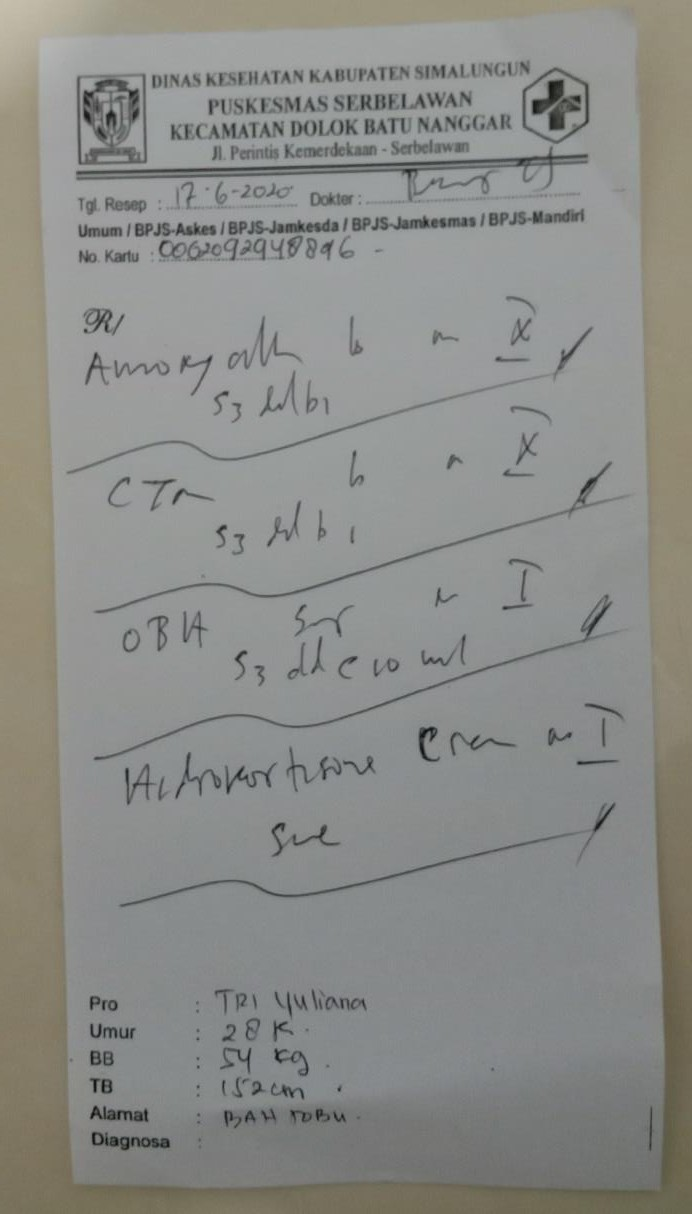 DINAS KESEHATAN KABUPATEN SIMALUNGUN
PUSKESMAS SERBELAWAN
KECAMATAN DOLOK BATU NANGGAR
Jl. Perintis Kemerdekaan - Serbelawan
Tgl. Resep : 17-6-2020 Dokter :
Umum / BPJS-Askes / BPJS-Jamkesda / BPJS-Jamkesmas / BPJS-Mandiri
No. Kartu : 0062092948896 -
R/
X
S3 dd b1
CTM X
S3 dd b1
OBH I
S3 dd C 10 ml
Hidrokortisone Crem I
Sue
Pro : TRI Yuliana
Umur : 28
BB : 54 kg.
TB : 152 cm
Alamat : BAH
Diagnosa :